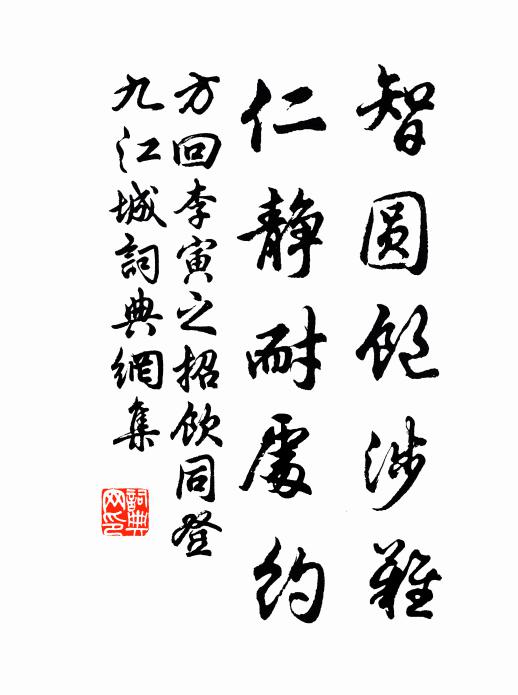 智圆飽涉難
仁静耐處約
方回李寅之招飲同登
九江城詞典網集
詞典网印